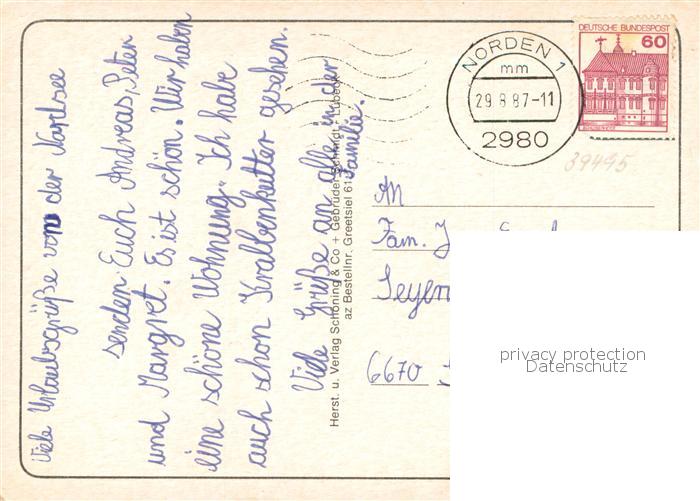 Viele Urlaubsgrüße von der Nordsee
senden Euch Andreas, Peter
und Margret. Es ist schön. Wir haben
eine schöne Wohnung. Ich habe
auch schon Krabbenkutter gesehen.
Viele Grüße an alle in der
Familie.
Herst. u. Verlag Schöning & Co + Gebrüder Schmidt - Lübeck
az Bestellnr. Greetsiel
NORDEN 1
mm
29.8.87-11
2980
DEUTSCHE BUNDESPOST
60
39495
An
Fam.
6670
privacy protection
Datenschutz